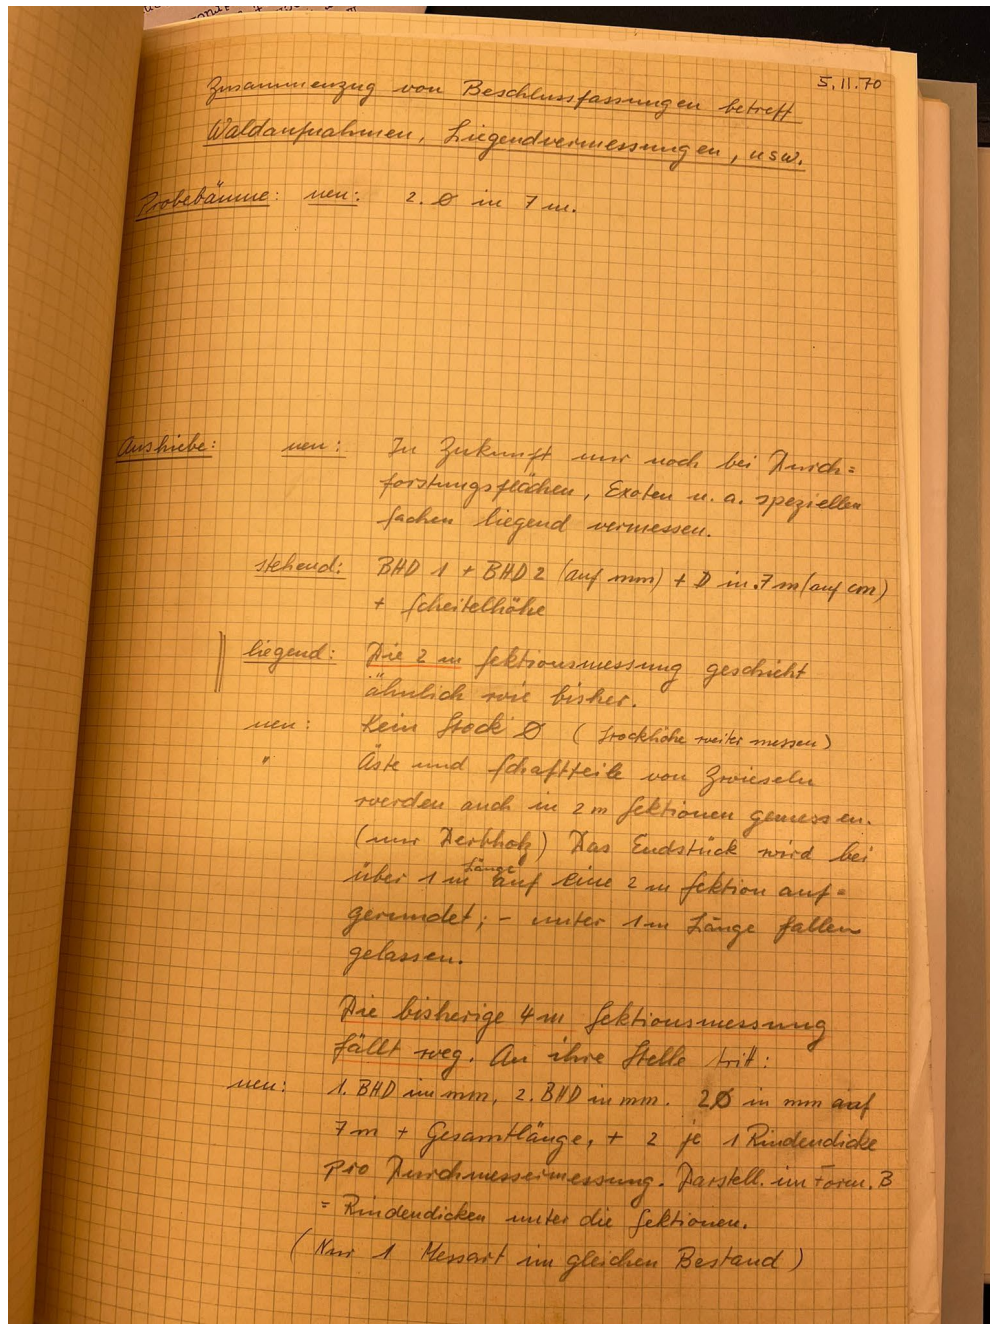 5.11.70
Zusammenzug von Beschlussfassungen betreff
Waldaufnahmen, Liegendvermessungen, usw.
Probebäume: neu: 2. Ø in 7 m.
Aushiebe: neu: In Zukunft nur noch bei Durch=
forstungsflächen, Exoten u. a. speziellen
Sachen liegend vermessen.
stehend: BHD 1 + BHD 2 (auf mm) + D in 7 m (auf cm)
+ Scheitelhöhe
liegend: Die 2 m Sektionsmessung geschieht
ähnlich wie bisher.
neu: Kein Stock Ø (Stockhöhe weiter messen)
" Äste und Schaftteile von Zwieseln
werden auch in 2 m Sektionen gemessen.
(nur Derbholz) Das Endstück wird bei
über 1 m Länge auf eine 2 m Sektion auf=
gerundet; - unter 1 m Länge fallen
gelassen.
Die bisherige 4 m Sektionsmessung
fällt weg. An ihre Stelle tritt:
neu: 1. BHD in mm, 2. BHD in mm. 2 Ø in mm auf
7 m + Gesamtlänge, + 2 je 1 Rindendicke
pro Durchmessermessung. Darstell. im Form. B
= Rindendicken unter die Sektionen.
(Nur 1 Messart im gleichen Bestand)